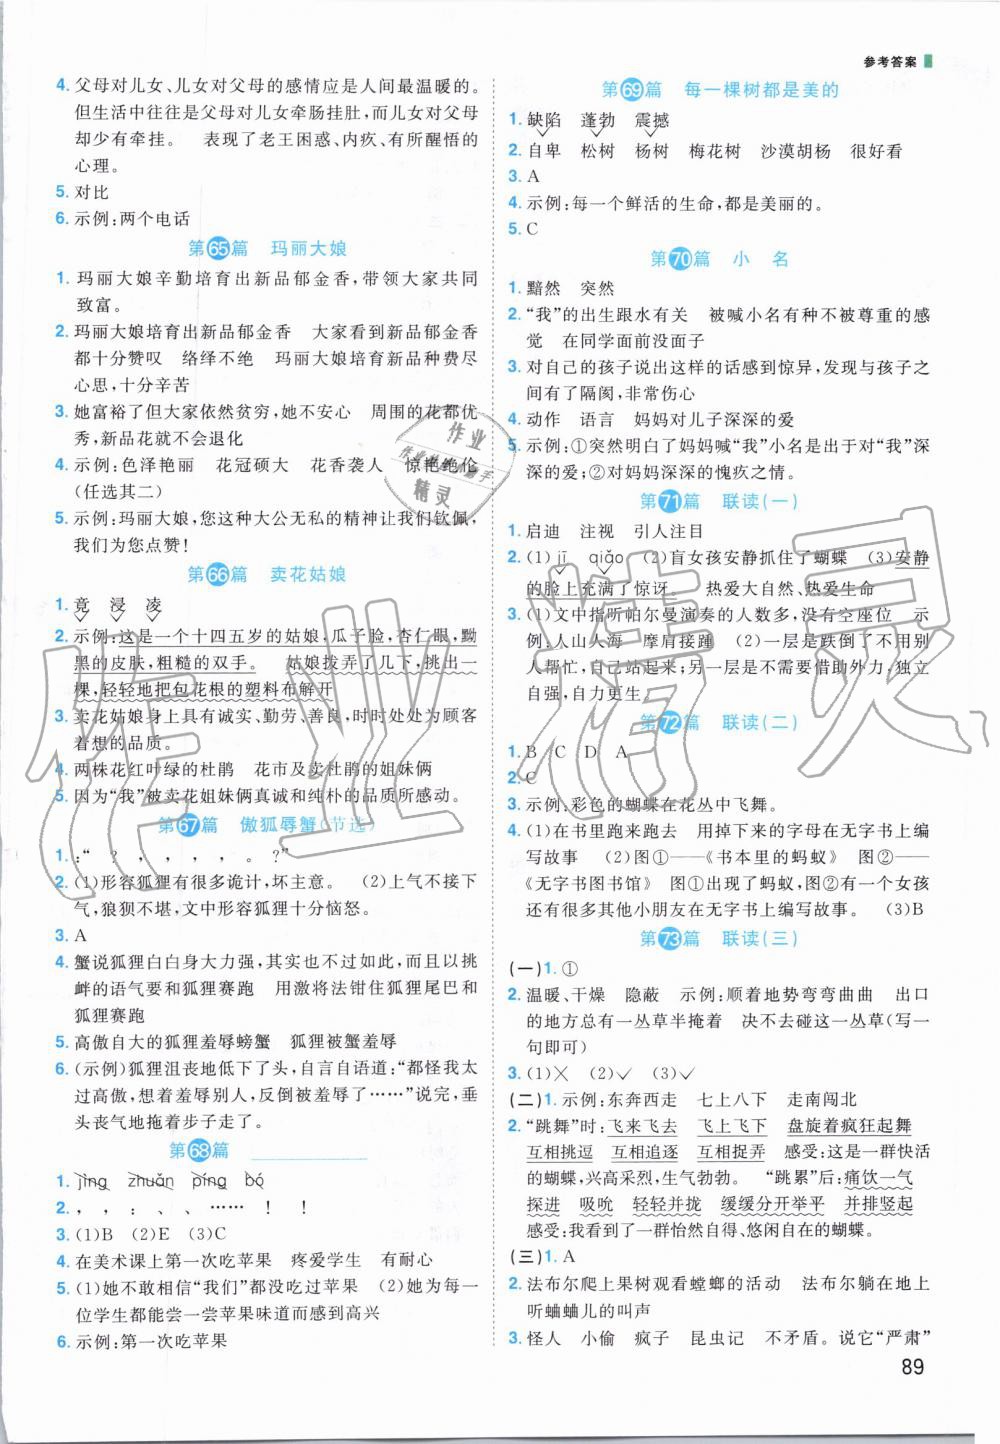 参考答案
4. 父母对儿女、儿女对父母的感情应是人间最温暖的。
但生活中往往是父母对儿女牵肠挂肚,而儿女对父母
却少有牵挂。 表现了老王困惑、内疚、有所醒悟的
心理。
5. 对比
6. 示例:两个电话
第65篇 玛丽大娘
1. 玛丽大娘辛勤培育出新品郁金香,带领大家共同
致富。
2. 玛丽大娘培育出新品郁金香 大家看到新品郁金香
都十分赞叹 络绎不绝 玛丽大娘育新品种费尽
心思,十分辛苦
3. 她富裕了但大家依然贫穷,她不安心 周围的花都优
秀,新品花就不会退化
4. 示例:色泽艳丽 花冠硕大 花香袭人 惊艳绝伦
(任选其二)
5. 示例:玛丽大娘,您这种大公无私的精神让我们钦佩,
我们为您点赞!
第66篇 卖花姑娘
1. 竟 浸 凌
2. 示例:这是一个十四五岁的姑娘,瓜子脸,杏仁眼,黝
黑的皮肤,粗糙的双手。 姑娘拨弄了几下,挑出一
棵,轻轻地把包花根的塑料布解开
3. 卖花姑娘身上具有诚实、勤劳、善良,时时处处为顾客
着想的品质。
4. 两株花红叶绿的杜鹃 花市及卖杜鹃的姐妹俩
5. 因为“我”被卖花姐妹俩真诚和纯朴的品质所感动。
第67篇 傲狐辱蟹(节选)
1. :“ ? , , , , 。?”
2. (1)形容狐狸有很多诡计,坏主意。 (2)上气不接下
气,狼狈不堪,文中形容狐狸十分恼怒。
3. A
4. 蟹说狐狸白白身大力强,其实也不过如此,并以挑
衅的语气要和狐狸赛跑 用激将法钳住狐狸尾巴和
和狐狸赛跑
5. 高傲自大的狐狸羞辱螃蟹 狐狸被蟹羞辱
6. (示例)狐狸沮丧地低下了头,自言自语道:“都怪我太
过高傲,想着羞辱别人,反倒被羞辱了……”说完,垂
头丧气地拖着步子走了。
第68篇
1. jìng zhuǎn píng bó
2. , , : 、 、 …… ! !
3. (1)B (2)E (3)C
4. 在美术课上第一次吃苹果 疼爱学生 有耐心
5. (1)她不敢相信“我们”都没吃过苹果 (2)为每一
位学生都能尝一尝苹果味道而感到高兴
6. 示例:第一次吃苹果
第69篇 每一棵树都是美的
1. 缺陷 蓬勃 震撼
2. 自卑 松树 杨树 梅花树 沙漠胡杨 很好看
3. A
4. 示例:每一个鲜活的生命,都是美丽的。
5. C
第70篇 小 名
1. 黯然 突然
2. “我”的出生跟水有关 被喊小名有种不被尊重的感
觉 在同学面前没面子
3. 对自己的孩子说出这样的话感到惊异,发现与孩子之
间有了隔阂,非常伤心
4. 动作 语言 妈妈对儿子深深的爱
5. 示例:①突然明白了妈妈喊“我”小名是出于对“我”深
深的爱;②对妈妈深深的愧疚之情
第71篇 联读(一)
1. 启迪 注视 引人注目
2. (1)jī qiǎo (2)盲女孩安静抓住了蝴蝶 (3)安静
的脸上充满了惊讶。 热爱大自然、热爱生命
3. (1)文中指听帕尔曼演奏的人数多,没有空座位 示
例:人山人海 摩肩接踵 (2)一层是跌倒了不用别
人帮忙,自己站起来;另一层是不需要借助外力,独立
自强,自力更生。
第72篇 联读(二)
1. B C D A
2. C
3. 示例:彩色的蝴蝶在花丛中飞舞。
4. (1)在书里跑来跑去 用掉下来的字母在无字书上编
写故事 (2)图①——《书本里的蚂蚁》 图②——
《无字书图书馆》 图①出现了蚂蚁,图②有一个女孩
还有很多其他小朋友在无字书上编写故事。 (3)B
第73篇 联读(三)
(一)1. ①
2. 温暖、干燥 隐蔽 示例:顺着地势弯弯曲曲 出口
的地方总有一丛草半掩着 决不去碰这一丛草(写一
句即可)
3. (1)× (2)✓ (3)✓
(二)1. 示例:东奔西走 七上八下 走南闯北
2. “跳舞”时:飞来飞去 飞上飞下 盘旋着疯狂起舞
互相挑逗 互相追逐 互相捉弄 感受:我看到了活泼
的蝴蝶,兴高采烈,生气勃勃。 “跳累”后:痛饮一气
探进 吸吮 轻轻并拢 缓缓分开举平 并排竖起
感受:我看到了一群怡然自得、悠闲自在的蝴蝶。
(三)1. A
2. 法布尔爬上果树观看螳螂的活动 法布尔躺在地上
听蛐蛐儿的叫声
3. 怪人 小偷 疯子 昆虫记 不矛盾。说它“严肃”
89
作业
精灵
作业精灵